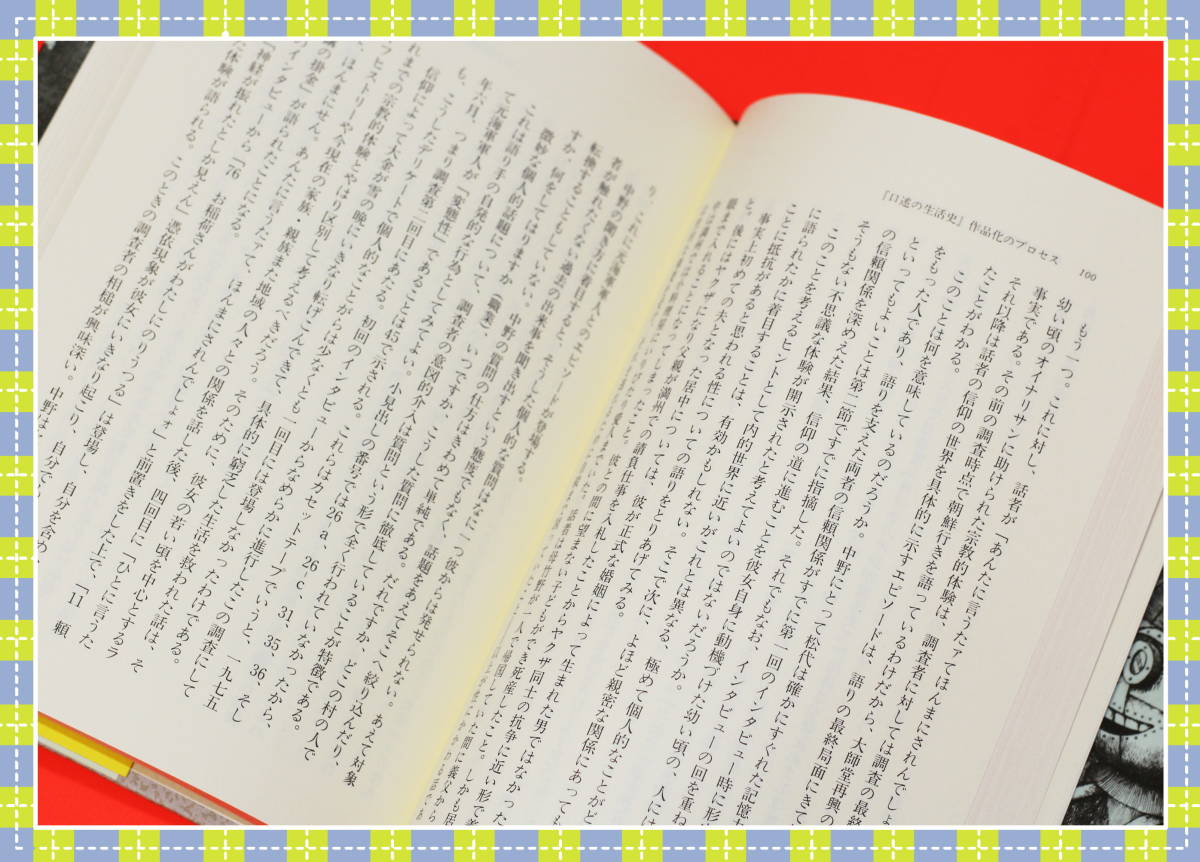 『口述の生活史』作品化のプロセス　100
もう一つ。これに対し、話者が「あんたに言うたァてほんまにされんでしょ
幼い頃のオイナリサンに助けられた宗教的体験は、調査者に対しては調査の最終
事実である。その前の調査時点で朝鮮行きを語っているわけだから、大師堂再興の
それ以降は話者の信仰の世界を具体的に示すエピソードは、語りの最終局面にきて
たことがわかる。
このことは何を意味しているのだろうか。中野にとって松代は確かにすぐれた記憶
をもった人であり、語りを支えた両者の信頼関係がすでに第一回のインタビュー時に形
といってもよいことは第二節ですでに指摘した。それでもなお、インタビューの回を重ね
の信頼関係を深めえた結果、信仰の道に進むことを彼女自身に動機づけた幼い頃の、人には
そうもない不思議な体験が開示されたと考えてよいのではないだろうか。
このことを考えるヒントとして内的世界に近いがこれとは異なる、極めて個人的なことがど
に語られたかに着目することは、有効かもしれない。そこで次に、よほど親密な関係にあっても
ことに抵抗があると思われる性についての語りをとりあげてみる。
事実上初めての夫となった居中については、彼が正式な婚姻によって生まれた男ではなかった
と。後にはヤクザになり父親が満州での請負仕事を入札したことからヤクザ同士の抗争に近い形で
り、これに元海軍軍人とのエピソードが登場する。
中野の聞き方に着目すると、そうした個人的な質問はなに一つ彼からは発せられない。あえて対象
者が触れたくない過去の出来事を聞き出すという態度でもなく、話題をあえてそこへ絞り込んだり、
転換することもしていない。中野の質問の仕方はきわめて単純である。だれですか、どこの村の人で
すか、何をしてはりますか（職業）、いつですか、こうした質問に徹底していることが特徴である。
微妙な個人的話題について、調査者の意図的介入は質問という形で全く行われていなかった。
これは語り手の自発的な行為としてみてよい。小見出しの番号では26-a、26-c、31、35、36、そし
て元海軍軍人が「変態性」であることは45で示される。これらはカセットテープでいうと、一九七五
年六月、つまり調査第二回目にあたる。初回のインタビューからなめらかに進行したこの調査にして
も、こうしたデリケートで個人的なことがらは少なくとも一回目には登場しなかったわけである。
信仰によって大金が雪の晩にいきなり転げこんできて、具体的に窮乏した生活を救われた話は、そ
れまでの宗教的体験とやはり区別して考えるべきだろう。そのために、彼女の若い頃を中心とするラ
フヒストリーや今現在の家族・親族また地域の人々との関係を話した後、四回目に「ひとに言うた
、ほんまにせん。あんたに言うたァて、ほんまにされんでしょォ」と前置きをした上で、「11　頼
の掛金」が語られたことになる。
インタビューから「76　お稲荷さんがわたしにのりうつる」は登場し、自分を含め、
「神経が振れたとしか見えん」憑依現象が彼女にいきなり起こり、自分で
た体験が語られる。このときの調査者の相槌が興味深い。中野は